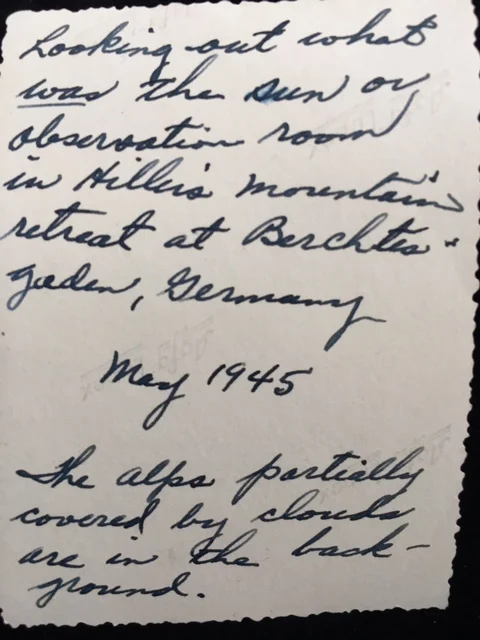 Looking out what
was the sun or
observation room
in Hitler's mountain
retreat at Berchtes-
gaden, Germany
May 1945
The alps partially
covered by clouds
are in the back-
ground.